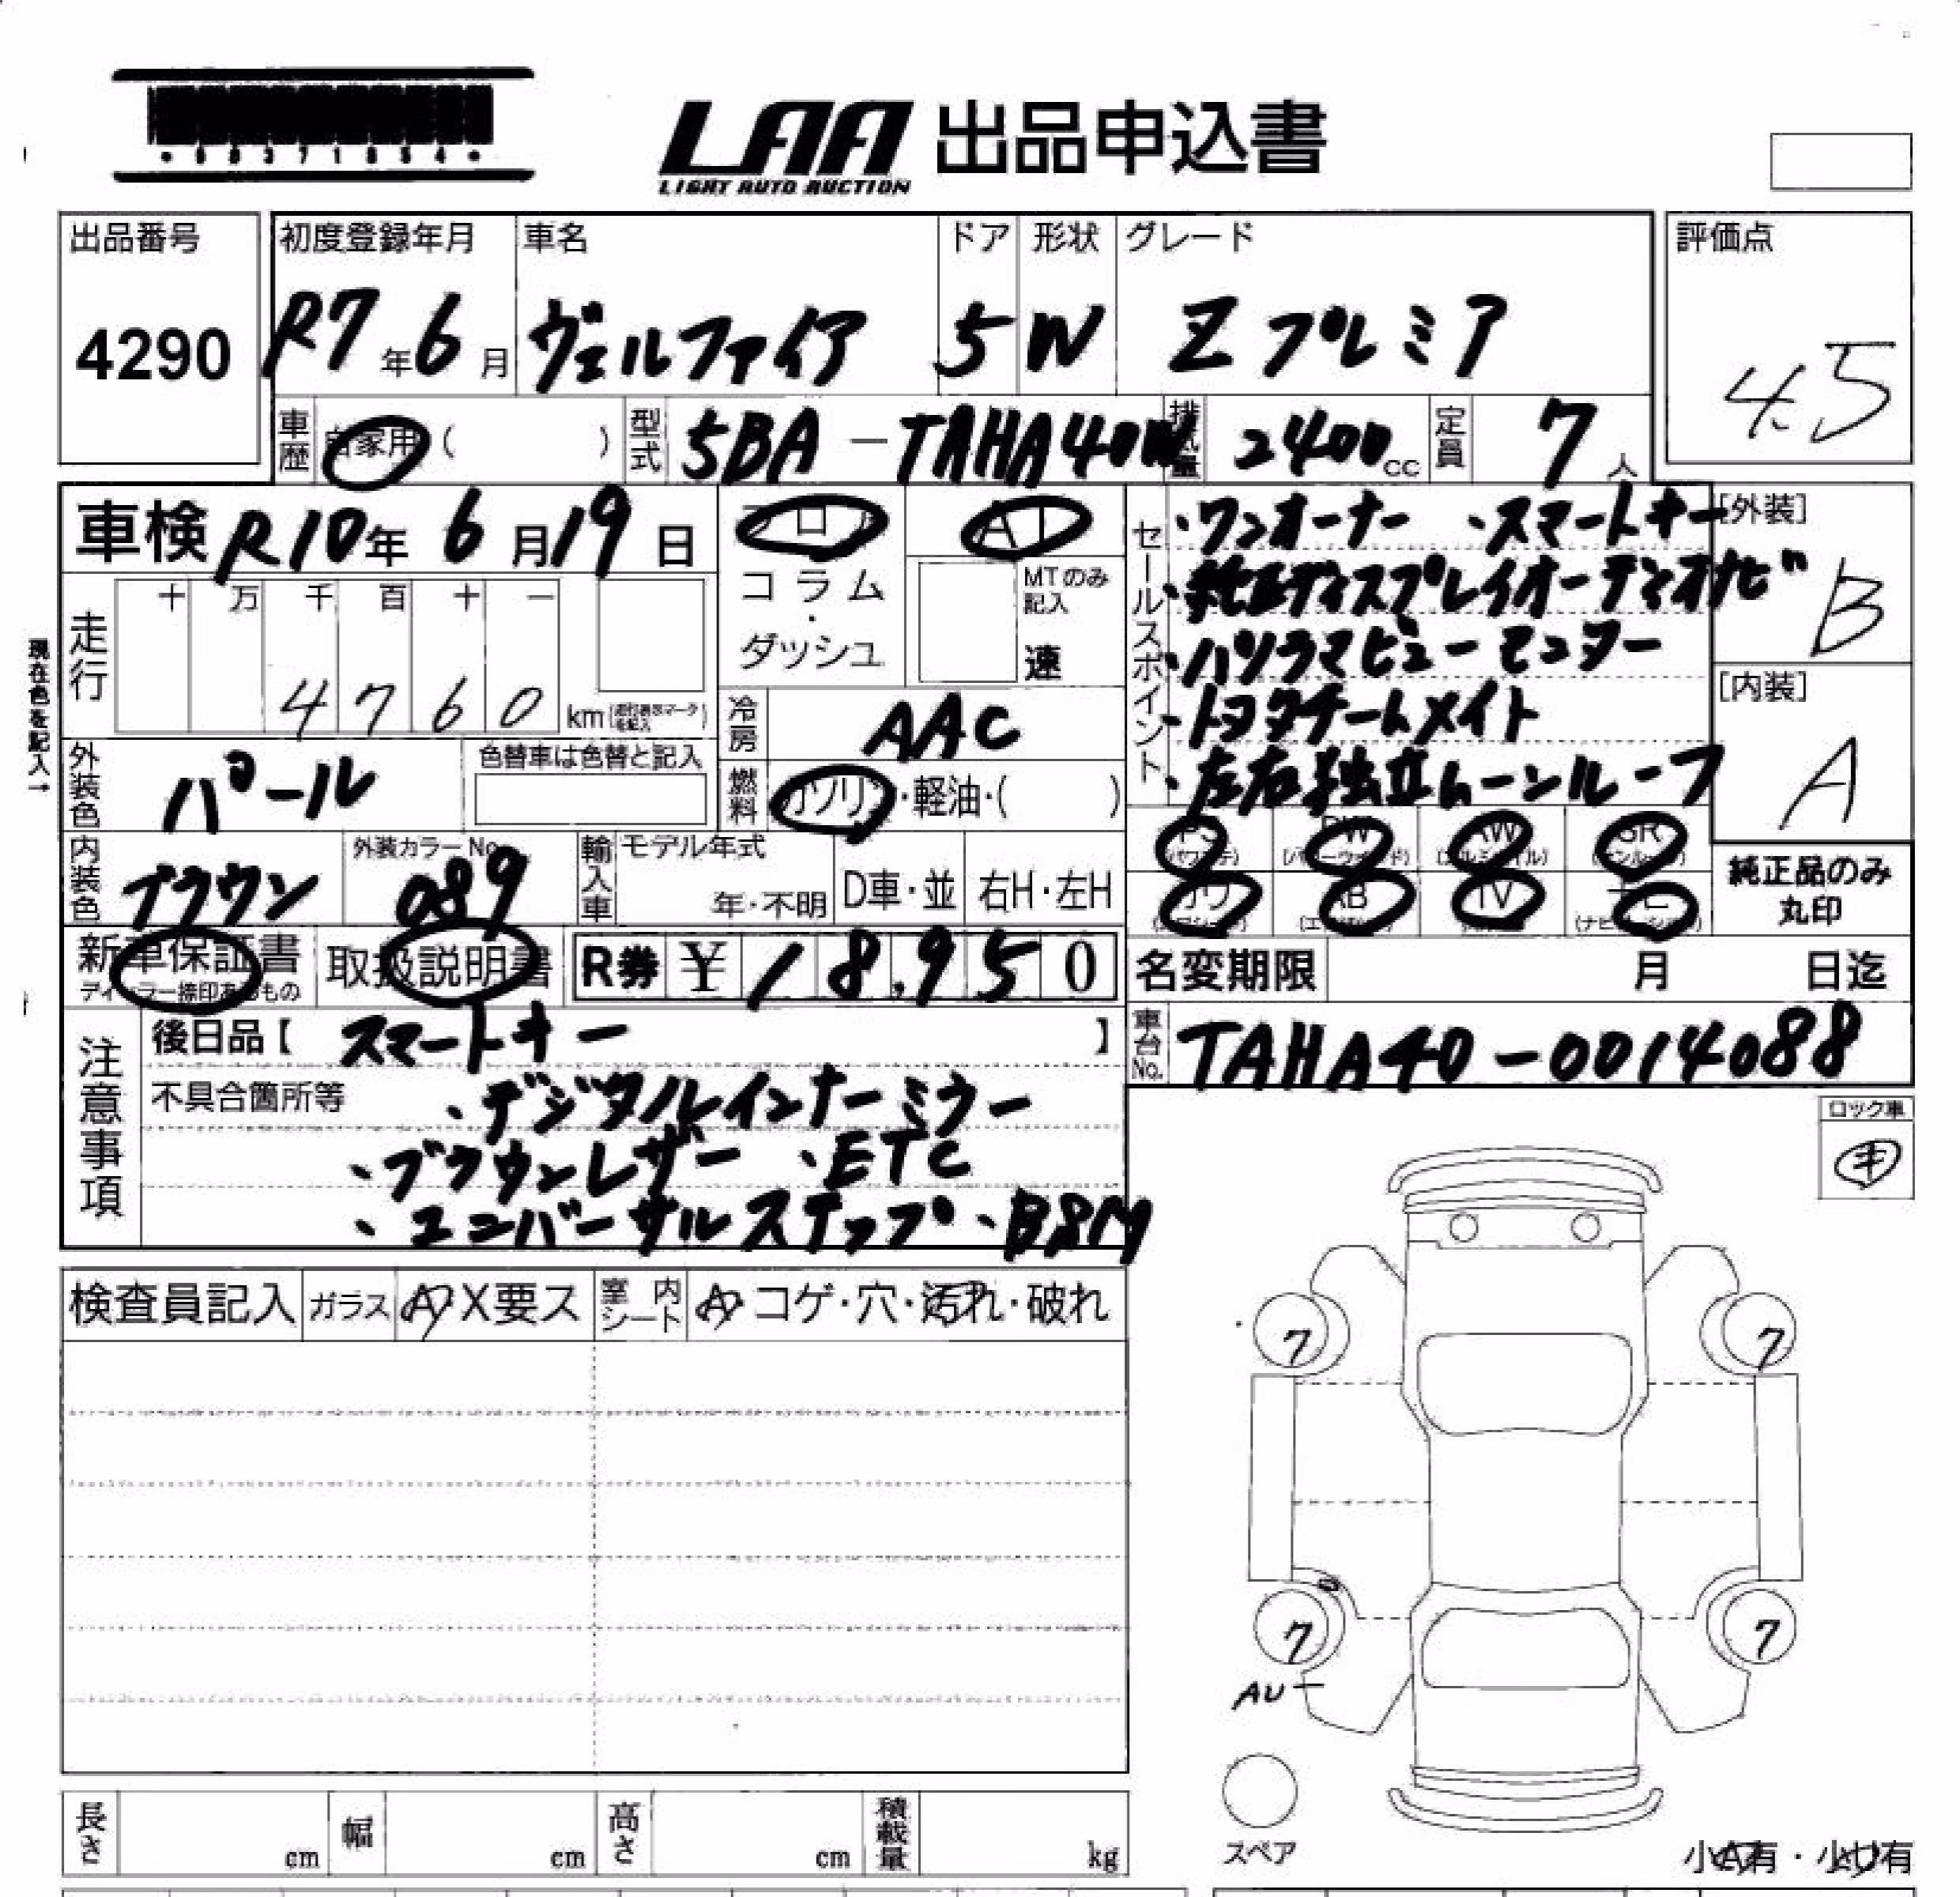 ・68371854・
LAA 出品申込書
LIGHT AUTO AUCTION
出品番号
4290
初度登録年月
R7年6月
車名
ヴェルファイア
ドア
5
形状
W
グレード
Zプレミア
評価点
4.5
車歴
自家用( )
型式
5BA-TAHA40W
排気量
2400cc
定員
7人
車検 R10年6月19日
フロア
コラム
・
ダッシュ
AT
MTのみ
記入
速
セールスポイント
・ワンオーナー ・スマートキー
・純正ディスプレイオーディオナビ
・パノラマビューモニター
・トヨタチームメイト
・左右独立ムーンルーフ
[外装]
B
[内装]
A
現在色を記入→
走行
十 万 千 百 十 一
4 7 6 0 km
冷房
AAC
外装色
パール
色替車は色替と記入
燃料
ガソリン・軽油・( )
内装色
ブラウン
外装カラーNo.
089
輸入車
モデル年式
年・不明
D車・並
右H・左H
PS PW AW SR
カワ AB TV ナビ
純正品のみ
丸印
新車保証書
ディーラー捺印あるもの
取扱説明書
R券 ¥18,950
名変期限 月 日迄
車台No.
TAHA40-0014088
注意事項
後日品【 スマートキー 】
不具合箇所等 ・デジタルインナーミラー
・ブラウンレザー ・ETC
・ユニバーサルステップ ・BSM
ロック車
キ
検査員記入
ガラス
A X要ス
室内シート
A コゲ・穴・汚れ・破れ
7
7
7
7
AU
スペア
長さ cm
幅 cm
高さ cm
積載量 kg
小A有・小U有